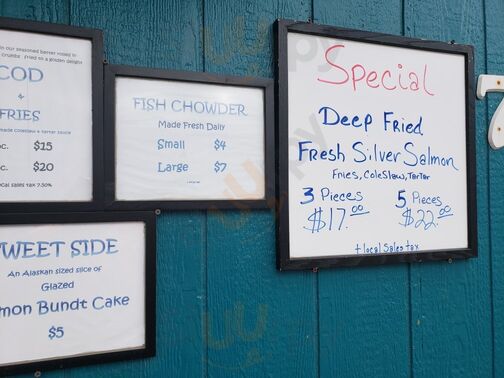 in our seasoned batter rolled in
crumbs fried to a golden delight
COD
&
FRIES
made Coleslaw & tartar sauce
pc. $15
pc. $20
local sales tax 7.50%
FISH CHOWDER
Made Fresh Daily
Small $4
Large $7
SWEET SIDE
An Alaskan sized slice of
Glazed
Bundt Cake
$5
Special
Deep Fried
Fresh Silver Salmon
Fries, ColeSlaw, Tartar
3 Pieces 5 Pieces
$17.00 $22.00
+ local Sales tax